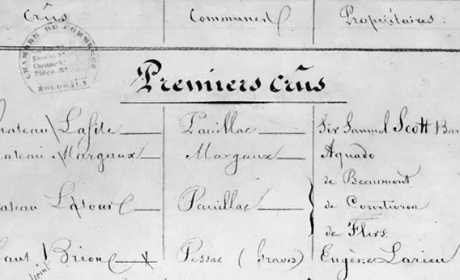 Crûs Communes Propriétaires
CHAMBRE DE COMMERCE
BORDEAUX
Premiers crûs
Chateau Lafite Pauillac Sir Samuel Scott Bar
Chateau Margaux Margaux Aguado
de Beaumont
Chateau Latour Pauillac de Courtivron
de Flers
Haut Brion Pessac (Graves) Eugène Larieu